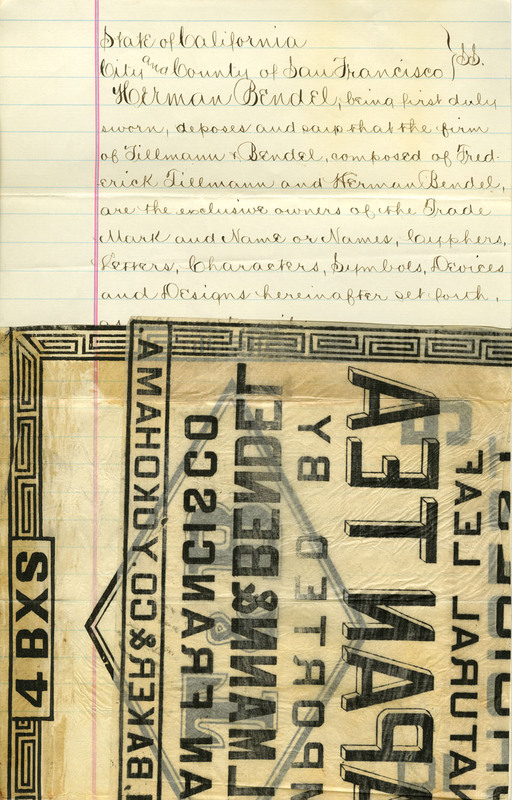 State of California } SS.
City and County of San Francisco
Herman Bendel, being first duly
sworn, deposes and says that the firm
of Tillmann & Bendel, composed of Fred-
erick Tillmann and Herman Bendel,
are the exclusive owners of the Trade
Mark and Name or Names, Cyphers,
Letters, Characters, Symbols, Devices
and Designs hereinafter set forth,
4 BXS
BAKER & CO. YOKOHAMA.
AN FRANCISCO
LMANN & BENDEL
PORTED BY
APAN TEA
NATURAL LEAF